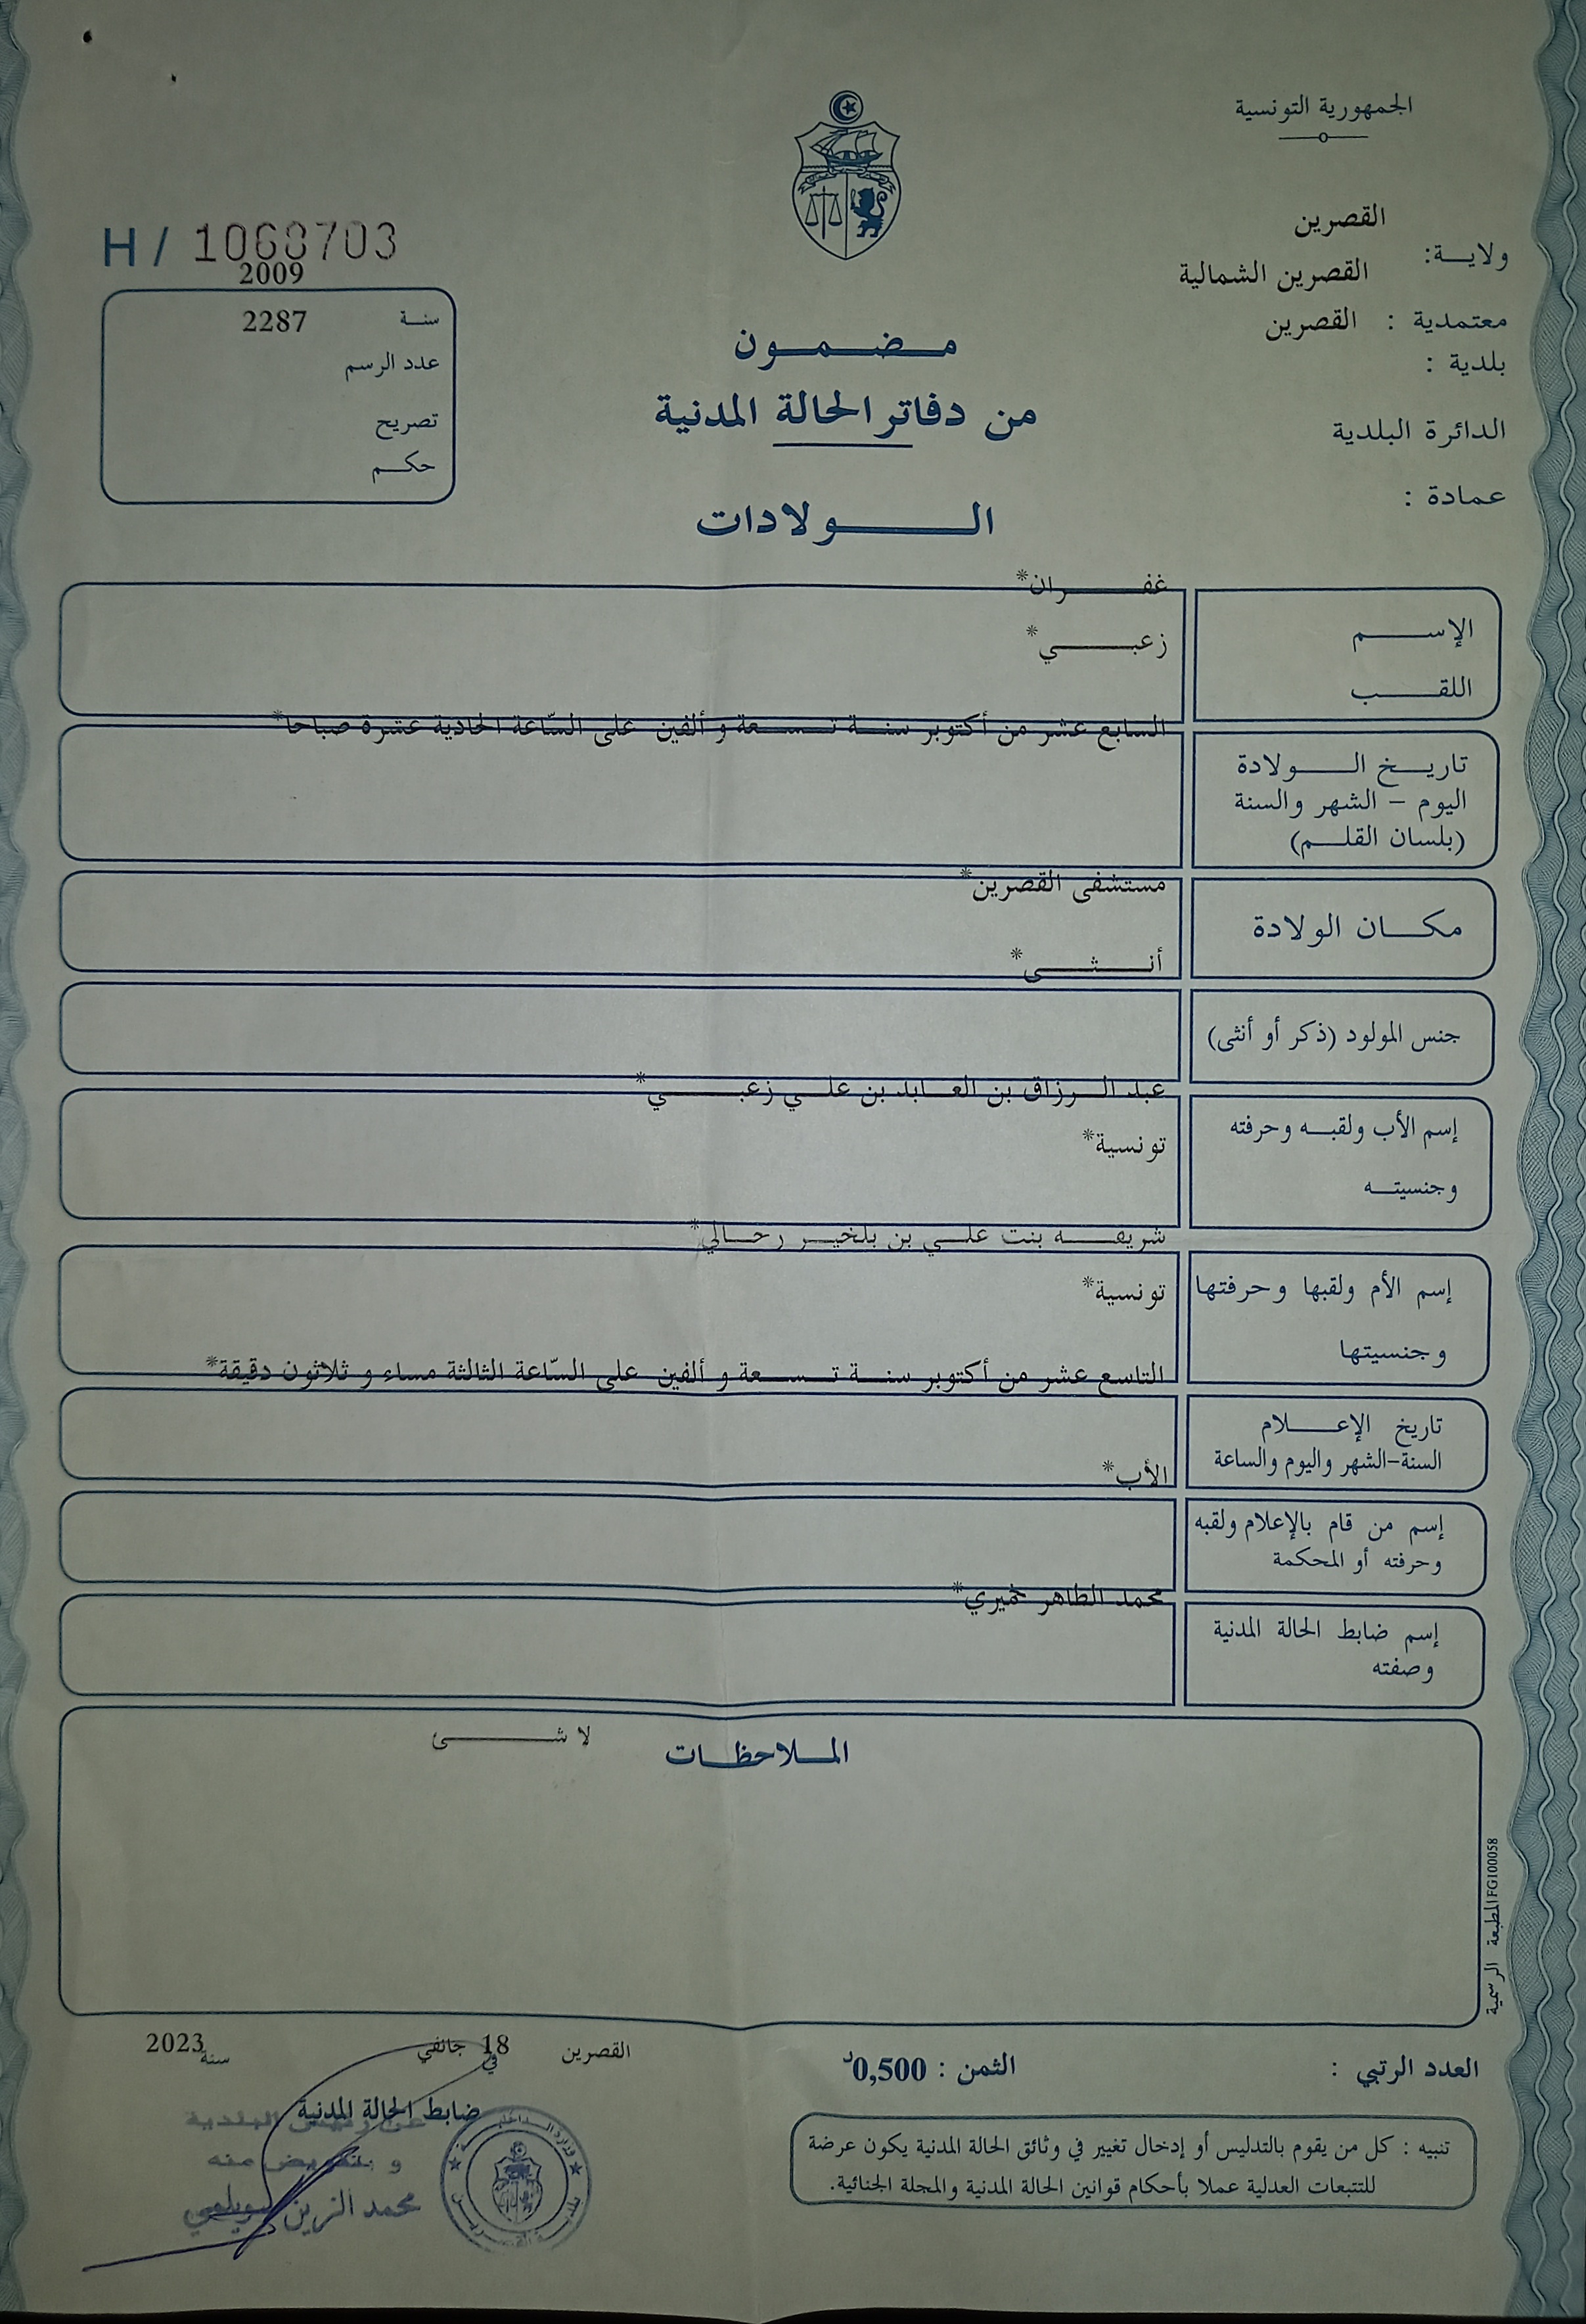 الجمهورية التونسية
القصرين
ولاية:
القصرين الشمالية
معتمدية : القصرين
بلدية :
الدائرة البلدية
عمادة :
مضمون
من دفاتر الحالة المدنية
الولادات
H/ 1060703
2009
سنة 2287
عدد الرسم
تصريح
حكم
غفران*
الإسم
زعبي*
اللقب
السابع عشر من أكتوبر سنة تسعة و ألفين على السّاعة الحادية عشرة صباحا*
تاريخ الولادة
اليوم - الشهر والسنة
(بلسان القلم)
مستشفى القصرين*
مكان الولادة
أنثى*
جنس المولود (ذكر أو أنثى)
عبد الرزاق بن العابد بن علي زعبي*
إسم الأب ولقبه وحرفته
تونسية*
وجنسيته
شريفه بنت علي بن بلخير رحالي*
إسم الأم ولقبها وحرفتها
تونسية*
وجنسيتها
التاسع عشر من أكتوبر سنة تسعة و ألفين على السّاعة الثالثة مساء و ثلاثون دقيقة*
تاريخ الإعلام
السنة-الشهر واليوم والساعة
الأب*
إسم من قام بالإعلام ولقبه
وحرفته أو المحكمة
محمد الطاهر خميري*
إسم ضابط الحالة المدنية
وصفته
لا شئ
الملاحظات
المطبعة الرسمية FG100058
العدد الرتبي :
الثمن : 0,500د
القصرين في 18 جانفي سنة 2023
ضابط الحالة المدنية
عن رئيس البلدية
و بتفويض منه
محمد الزين
تنبيه : كل من يقوم بالتدليس أو إدخال تغيير في وثائق الحالة المدنية يكون عرضة
للتتبعات العدلية عملا بأحكام قوانين الحالة المدنية والمجلة الجنائية.